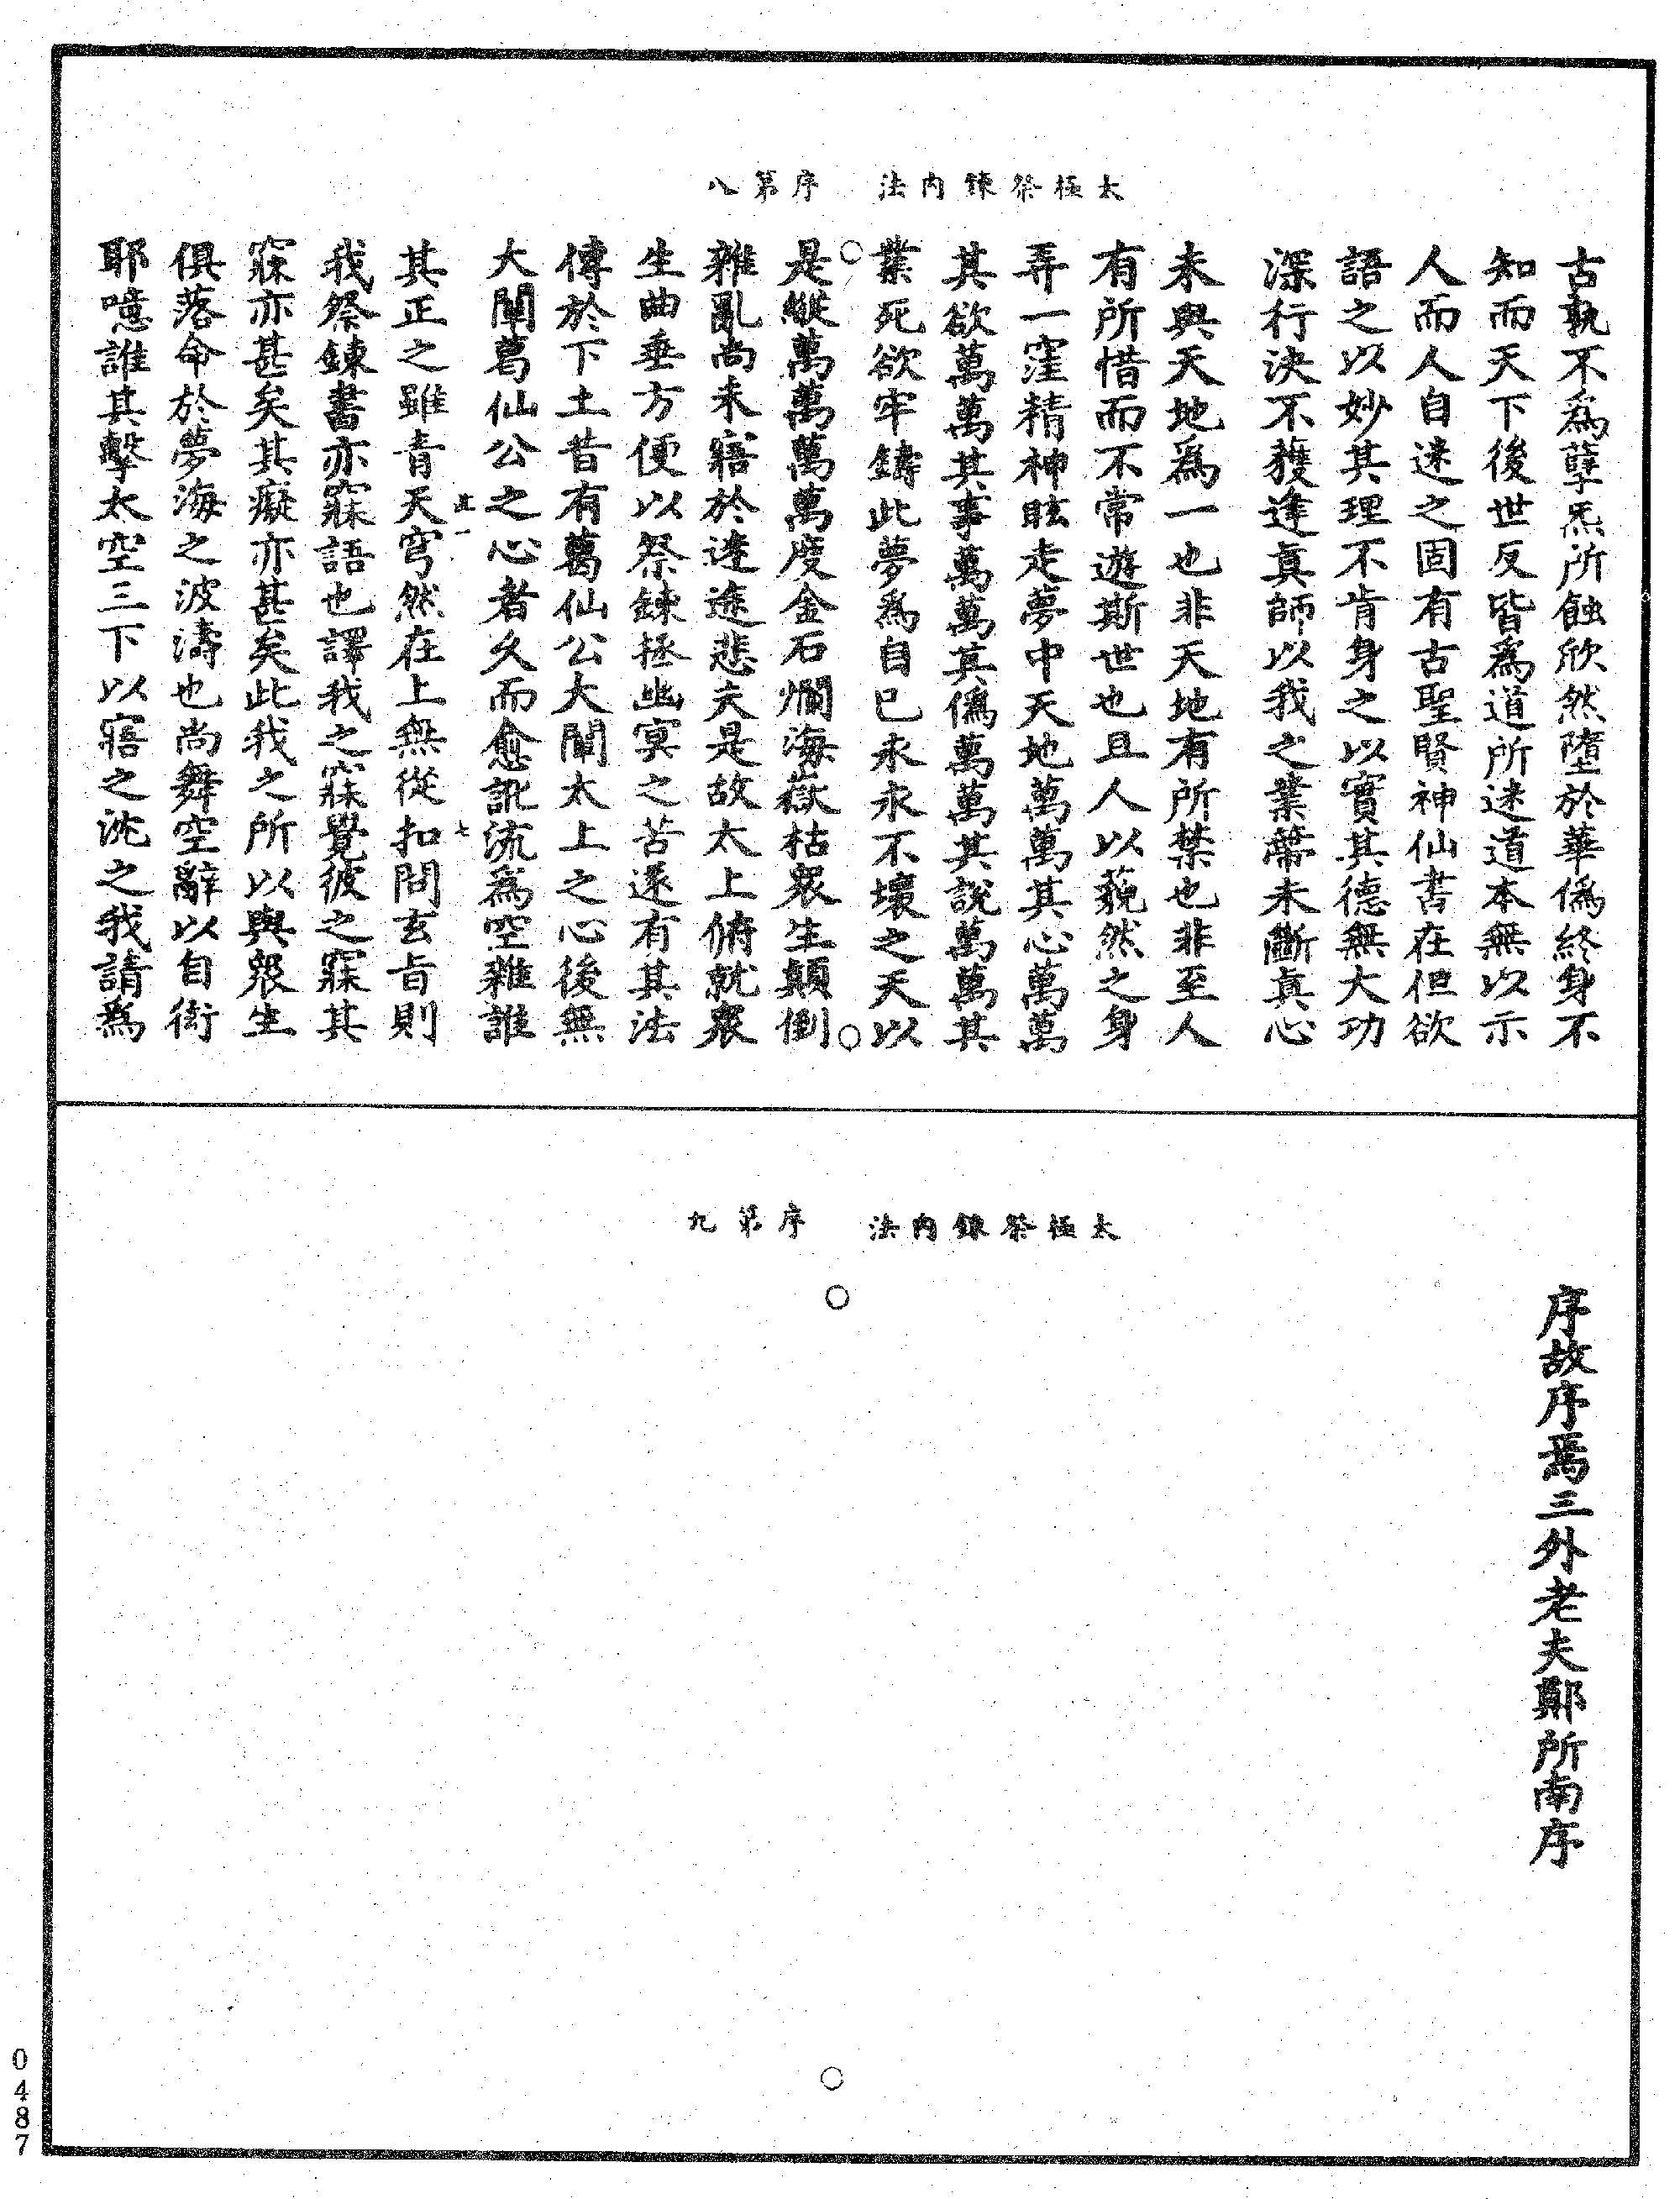 太極祭鍊內法　序第八
古孰不為孽炁所蝕欣然墮於華偽終身不
知而天下後世反皆為道所迷道本無以示
人而人自迷之固有古聖賢神仙書在但欲
語之以妙其理不肯身之以實其德無大功
深行決不獲逢真師以我之業蔕未斷真心
未與天地為一也非天地有所禁也非至人
有所惜而不常遊斯世也且人以藐然之身
弄一窪精神眩走夢中天地萬萬其心萬萬
其欲萬萬其事萬萬其偽萬萬其說萬萬其
業死欲牢鑄此夢為自己永永不壞之天以
是縱萬萬萬萬度金石爛海嶽枯眾生顛倒
雜亂尚未寤於迷途悲夫是故太上俯就眾
生曲垂方便以祭鍊拯幽冥之苦還有其法
傳於下土昔有葛仙公大闡太上之心後無
大闡葛仙公之心者久而愈訛流為空雜誰
其正之雖青天穹然在上無從扣問玄旨則
我祭鍊書亦寐語也譯我之寐覺彼之寐其
寐亦甚矣其癡亦甚矣此我之所以與眾生
俱落命於夢海之波濤也尚舞空辭以自衒
耶噫誰其擊太空三下以寤之沈之我請為
太極祭鍊內法　序第九
序故序焉三外老夫鄭所南序
0487